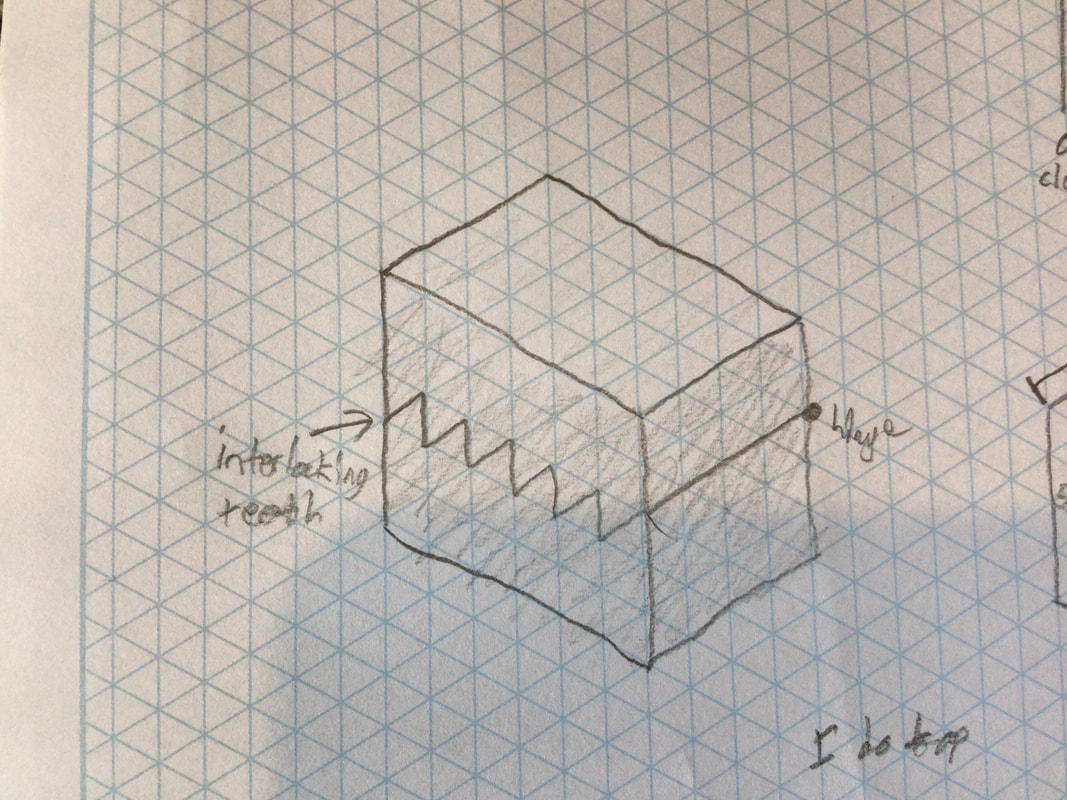 interlocking
teeth
hinge
I do top